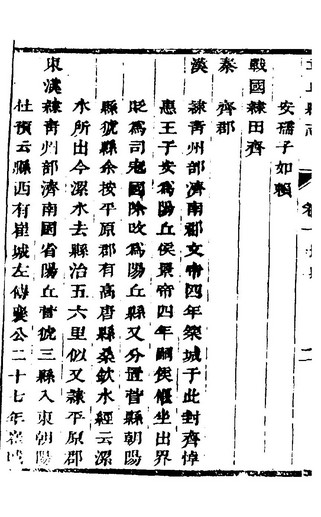 章丘縣志 卷一
安孺子如賴
戰國隸田齊
秦 齊郡
漢 隸青州部濟南郡文帝四年築城于此封齊悼
惠王子安為陽丘侯景帝四年嗣侯偃坐出界
貶為司寇國除改為陽丘縣又分置菅縣朝陽
縣猇縣余按平原郡有高唐縣桑欽水經云漯
水所出今漯水去縣治五六里似又隸平原郡
東漢隸青州部濟南國省陽丘菅猇三縣入東朝陽
杜預云縣西有崔城左傳襄公二十七年